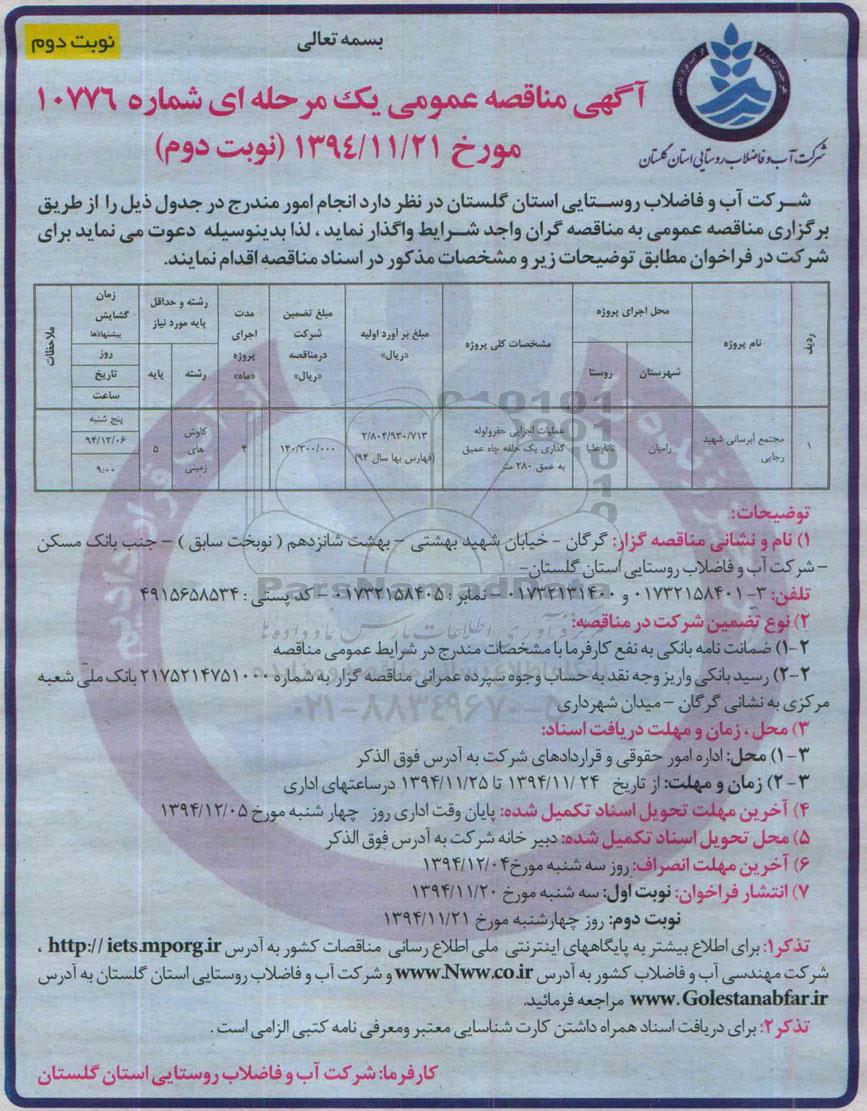 بسمه تعالی
نوبت دوم
شرکت آب و فاضلاب روستایی استان گلستان
آگهی مناقصه عمومی یک مرحله ای شماره ۱۰۷۷۶
مورخ ۱۳۹٤/۱۱/۲۱ (نوبت دوم)
شرکت آب و فاضلاب روستایی استان گلستان در نظر دارد انجام امور مندرج در جدول ذیل را از طریق
برگزاری مناقصه عمومی به مناقصه گران واجد شرایط واگذار نماید ، لذا بدینوسیله دعوت می نماید برای
شرکت در فراخوان مطابق توضیحات زیر و مشخصات مذکور در اسناد مناقصه اقدام نمایند.
ردیف
نام پروژه
محل اجرای پروژه
شهرستان
روستا
مشخصات کلی پروژه
مبلغ بر آورد اولیه
«ریال»
مبلغ تضمین
شرکت
درمناقصه
«ریال»
مدت
اجرای
پروژه
«ماه»
رشته و حداقل
پایه مورد نیاز
رشته
پایه
زمان
گشایش
پیشنهادها
روز
تاریخ
ساعت
ملاحظات
۱
مجتمع آبرسانی شهید
رجایی
رامیان
تاتارعلیا
عملیات اجرایی حفرولوله
گذاری یک حلقه چاه عمیق
به عمق ۲۸۰ متر
۲/۸۰۴/۹۳۰/۷۱۳
(فهارس بها سال ۹۴)
۱۴۰/۳۰۰/۰۰۰
۴
کاوش
های
زمینی
۵
پنج شنبه
۹۴/۱۲/۰۶
۹:۰۰
توضیحات:
۱) نام و نشانی مناقصه گزار: گرگان - خیابان شهید بهشتی - بهشت شانزدهم ( نوبخت سابق ) - جنب بانک مسکن
- شرکت آب و فاضلاب روستایی استان گلستان-
تلفن: ۳- ۰۱۷۳۲۱۵۸۴۰۱ و ۰۱۷۳۲۱۳۱۴۰۰ - نمابر : ۰۱۷۳۲۱۵۸۴۰۵ - کد پستی : ۴۹۱۵۶۵۸۵۳۴
۲) نوع تضمین شرکت در مناقصه:
۲-۱) ضمانت نامه بانکی به نفع کارفرما با مشخصات مندرج در شرایط عمومی مناقصه
۲-۲) رسید بانکی واریز وجه نقد به حساب وجوه سپرده عمرانی مناقصه گزار به شماره ۲۱۷۵۲۱۴۷۵۱۰۰۰ بانک ملی شعبه
مرکزی به نشانی گرگان - میدان شهرداری
۳) محل ، زمان و مهلت دریافت اسناد:
۳-۱) محل: اداره امور حقوقی و قراردادهای شرکت به آدرس فوق الذکر
۳-۲) زمان و مهلت: از تاریخ ۲۴ /۱۳۹۴/۱۱ تا ۱۳۹۴/۱۱/۲۵ درساعتهای اداری
۴) آخرین مهلت تحویل اسناد تکمیل شده: پایان وقت اداری روز چهار شنبه مورخ ۱۳۹۴/۱۲/۰۵
۵) محل تحویل اسناد تکمیل شده: دبیر خانه شرکت به آدرس فوق الذکر
۶) آخرین مهلت انصراف: روز سه شنبه مورخ ۱۳۹۴/۱۲/۰۴
۷) انتشار فراخوان: نوبت اول: سه شنبه مورخ ۱۳۹۴/۱۱/۲۰
نوبت دوم: روز چهارشنبه مورخ ۱۳۹۴/۱۱/۲۱
تذکر۱: برای اطلاع بیشتر به پایگاههای اینترنتی ملی اطلاع رسانی مناقصات کشور به آدرس http:// iets.mporg.ir ،
شرکت مهندسی آب و فاضلاب کشور به آدرس www.Nww.co.ir و شرکت آب و فاضلاب روستایی استان گلستان به آدرس
www. Golestanabfar.ir مراجعه فرمائید.
تذکر۲: برای دریافت اسناد همراه داشتن کارت شناسایی معتبر ومعرفی نامه کتبی الزامی است .
کارفرما: شرکت آب و فاضلاب روستایی استان گلستان
ParsNamadData
۰۲۱-۸۸۳۴۹۶۷۰-۵